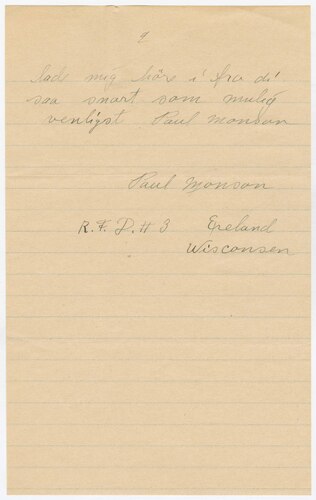 9
lad mig höre i fra di
saa snart som mulig
venligst Paul Monson
Paul Monson
R. F. D. # 3 Exeland
Wisconsen